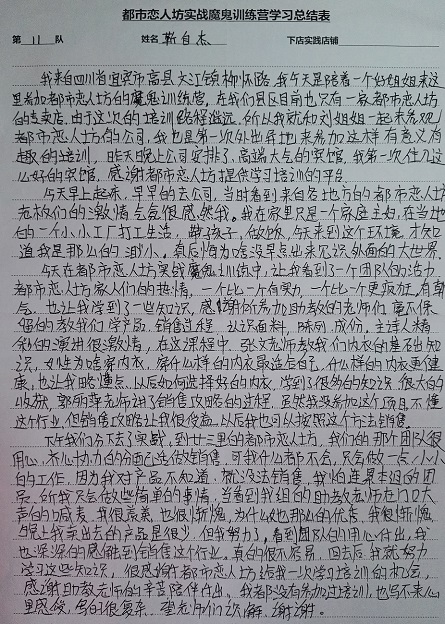 都市恋人坊实战魔鬼训练营学习总结表
第 11 队 姓名 靳自杰 下店实践店铺
我来自四川省宜宾市高县 文江镇柳怀路 我今天是陪着一个好姐姐来这
里参加都市恋人坊的魔鬼训练营，在我们县区目前也只有一家都市恋人坊
的专卖店，由于这次的培训 路程遥远，所以我就和刘姐姐一起来参观
都市恋人坊的公司，我也是第一次出异地来参加这样有意义有
趣的培训，昨天晚上公司安排了，高端大气的宾馆，我第一次住几这
么好的宾馆，感谢都市恋人坊提供学习培训的平台
今天早上起床，早早的去公司，当时看到来自各地方的都市恋人坊
老板们的激情 气氛很感染我。我在家里只是一个家庭主妇，在当地
的一个小小工厂打工生活，带孩子，做饭，今天来到这个环境，才知
道我是那么的 渺小。真后悔为啥没早点出来见识外面的大世界。
今天在都市恋人坊实战魔鬼训练中，让我看到了一个团队的活力，
都市恋人坊家人们的热情，一个比一个有实力，一个比一个更疯狂，有朝
气。也让我学到了一些知识，感谢你参加助教的老师们 毫不保
留的教我们 学产品，销售过程 认识面料，陈列，成份。主持人精
彩的演讲很激情，在这课程中，张文老师教我们内衣的基础知
识，女性为啥穿内衣，穿什么样的内衣最适合自己，什么样的内衣更健
康，也让我略懂点，以后如何选择好的内衣，学到了很多的知识，很大的
收获，郭丽萍老师讲了销售攻略的过程，虽然我没参加这个项目，不懂
这个行业，但销售攻略让我很受益，以后我也可以按照这个方法销售。
下午我们各下去了实战，到廿三里的都市恋人坊，我们的那个团队很
用心，齐心协力的分配任务做销售，可我什么都不会，只会做一点小小
的工作，因为我对产品不知道，就没法销售，我怕连累本组的团
员，所以只会做些简单的事情，当看到我组的助教老师在门口大
声的喊麦，我很羡慕，也很惭愧，为什么她那么的优秀，我很惭愧
晚上我卖出去的产品是很少，但我努力了，看到团队的用心付出，我
也深深的感触到销售这个行业，真的很不容易，回去后我就努力
学习这些知识，很感谢都市恋人坊给我一次学习培训的机会，
感谢助教老师的辛苦陪伴付出。我都没有参加过培训，也写不来心
里感受，写的很复杂，望老师们谅解，谢谢。